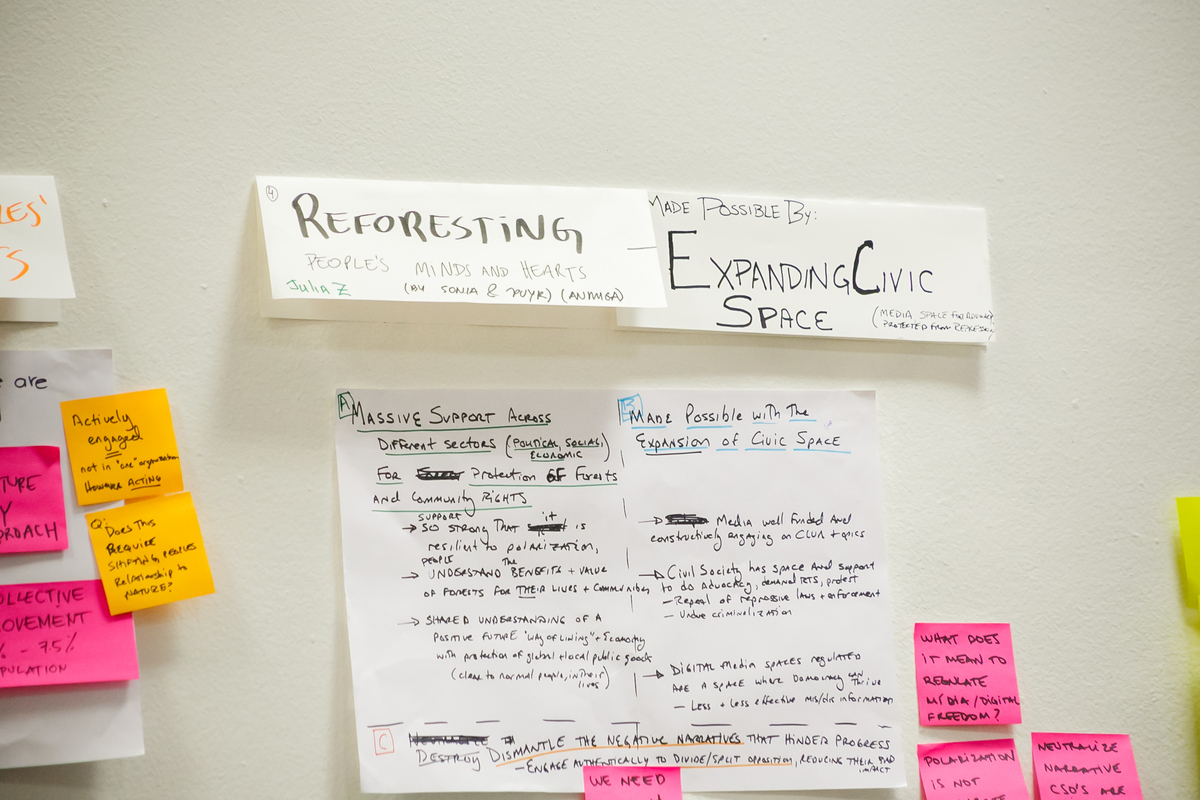 LES'
TS
4
REFORESTING
PEOPLE'S MINDS AND HEARTS
Julia Z
(BY SONIA &
MADE POSSIBLE BY:
EXPANDING CIVIC
SPACE
(MEDIA, SPACE FOR ADVOCACY
PROTECTED from REPRESSI
e are
Actively
engaged
not in "one" organization
However ACTING
TURE
Y
PROACH
Q: Does This
REQUIRE
SHIFTING PEOPLES
Relationship to
NATURE?
OLLECTIVE
OVEMENT
% - 75%
PULATION
A MASSIVE SUPPORT ACROSS
DIFFERENT SECTORS (POLITICAL, SOCIAL,
ECONOMIC)
FOR PROTECTION OF FORESTS
AND COMMUNITY RIGHTS
→ SUPPORT SO STRONG THAT it is
resilient to polarization,
→ PEOPLE UNDERSTAND The BENEFITS + VALUE
OF FORESTS FOR THEIR LIVES + COMMUNITIES
→ SHARED UNDERSTANDING OF A
POSITIVE FUTURE "WAY OF LIVING" + Economy
with protection of global + local public goods
(close to normal people, in their
lives)
B MADE POSSIBLE WITH THE
EXPANSION OF CIVIC SPACE
→ Media well funded and
constructively engaging on CLUA topics
→ Civil Society has space and support
to do advocacy, demand RTS, protest
- Repeal of repressive laws + enforcement
- Undue criminalization
→ DIGITAL Media SPACES REGULATED
ARE A SPACE WHERE DEMOCRACY can Thrive
- Less + less effective mis/dis information
C DESTROY DISMANTLE THE NEGATIVE NARRATIVES THAT HINDER PROGRESS
- ENGAGE AUTHENTICALLY TO DIVIDE/SPLIT OPPOSITION, REDUCING THEIR
IMPACT
WE NEED
WHAT DOES
IT MEAN TO
REGULATE
MEDIA/DIGITAL
FREEDOM?
POLARIZATION
IS NOT
NEUTRALIZE
NARRATIVE
CSO'S ARE